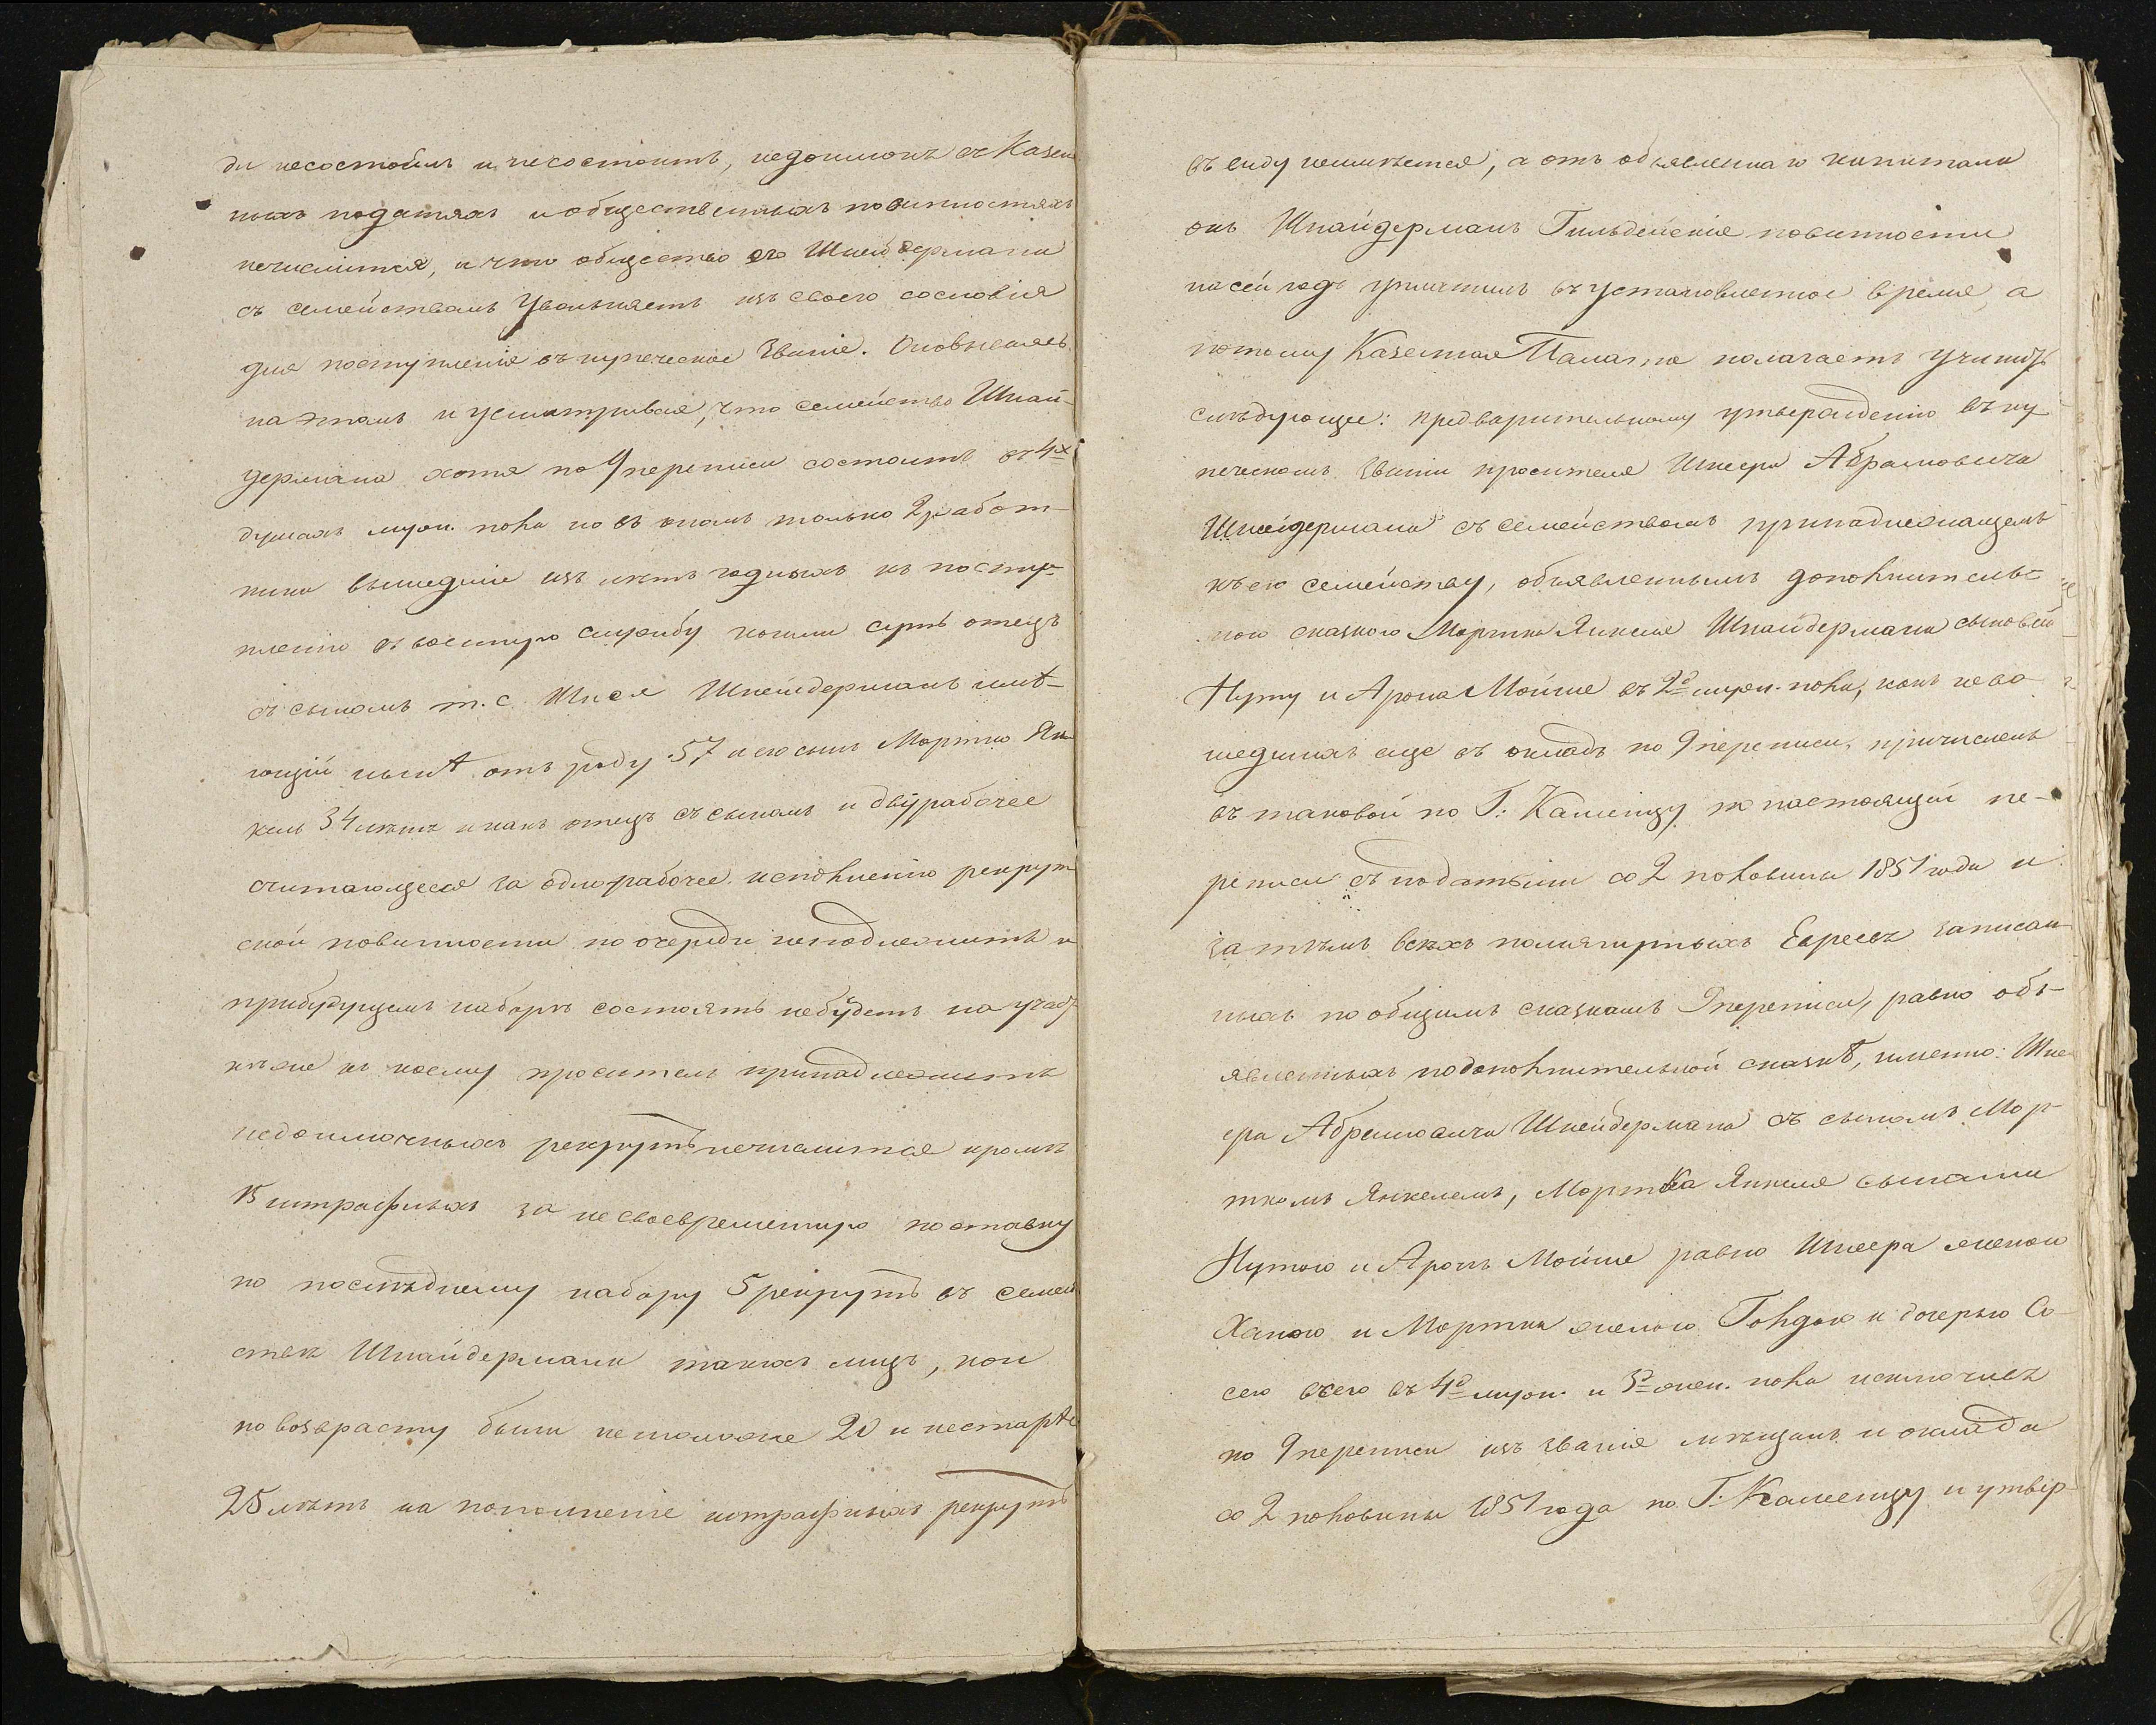 ди несостоитъ и несостоитъ, недоимокъ въ Казен
ныхъ податяхъ и общественныхъ повинностяхъ
нечислится, и что общество его Шнейдермана
съ семействомъ увольняетъ изъ своего сословія
для поступленія въ купеческое званіе. Основываясь
на этомъ и усматривая, что семейство Шнай-
дермана хотя по 9 переписи состоитъ въ 4х
душахъ муж. пола но въ ономъ только 2 работ-
ника вышедшіе изъ лѣтъ годныхъ къ посту-
пленію въ военную службу коими суть отецъ
съ сыномъ т. е. Шнея Шнейдерманъ имѣ-
ющій нынѣ отъ роду 57 и его сынъ Мортко Ян-
кель 34 лѣтъ и какъ отецъ съ сыномъ и двурабочее
считающееся за однорабочее исполненію рекрут
ской повинности по очереди неподлежитъ и
прибудущемъ наборѣ состоять небудетъ на участ
кѣ же къ коему проситель принадлежитъ
недоимочныхъ рекрутъ нечислится кромѣ
15 штрафныхъ за несвоевременную поставку
по послѣднему набору 5 рекрутъ въ семей
ствѣ Шнайдермана такихъ лицъ, кои
по возврасту были немоложе 20 и нестарѣе
25 лѣтъ на пополненіе штрафныхъ рекрутъ
въ виду неимѣется, а отъ объявленнаго капитала
онъ Шнайдерманъ Гильдейскіе повинности
на сей годъ уплатилъ въ установленное время, а
потому Казенная Палата полагаетъ учинить
слѣдующее: предварительному утвержденію въ ку
печескомъ званіи просителя Шнеера Абрамовича
Шнейдермана съ семействомъ принадлежащемъ
къ его семейству, объявленнымъ дополнитель-
ною сказкою Мортка Янкеля Шнайдермана сыновей
Нуту и Арона Мойше въ 2о муж. пола, какъ нево
шедшихъ еще въ окладъ по 9 переписи, причислить
въ таковой по Г: Каменцу по настоящей пе-
реписи съ податьми со 2 половины 1851 года и
затѣмъ всѣхъ поименутыхъ Евреевъ записан
ныхъ по общимъ сказкамъ 9 переписи, равно объ-
явленныхъ подополнительной сказкѣ, именно: Шне
ера Абрамовича Шнейдермана съ сыномъ Мор-
ткомъ Янкелемъ, Мортка Янкеля сынами
Нутою и Аронъ Мойше равно Шнеера женою
Ханою и Мортка женою Голдою и дочерью Со
сею всего въ 4о муж. и 3о жен. пола исключивъ
по 9 переписи изъ званія мѣщанъ и оклада
со 2 половины 1851 года по Г: Каменцу и утвер-